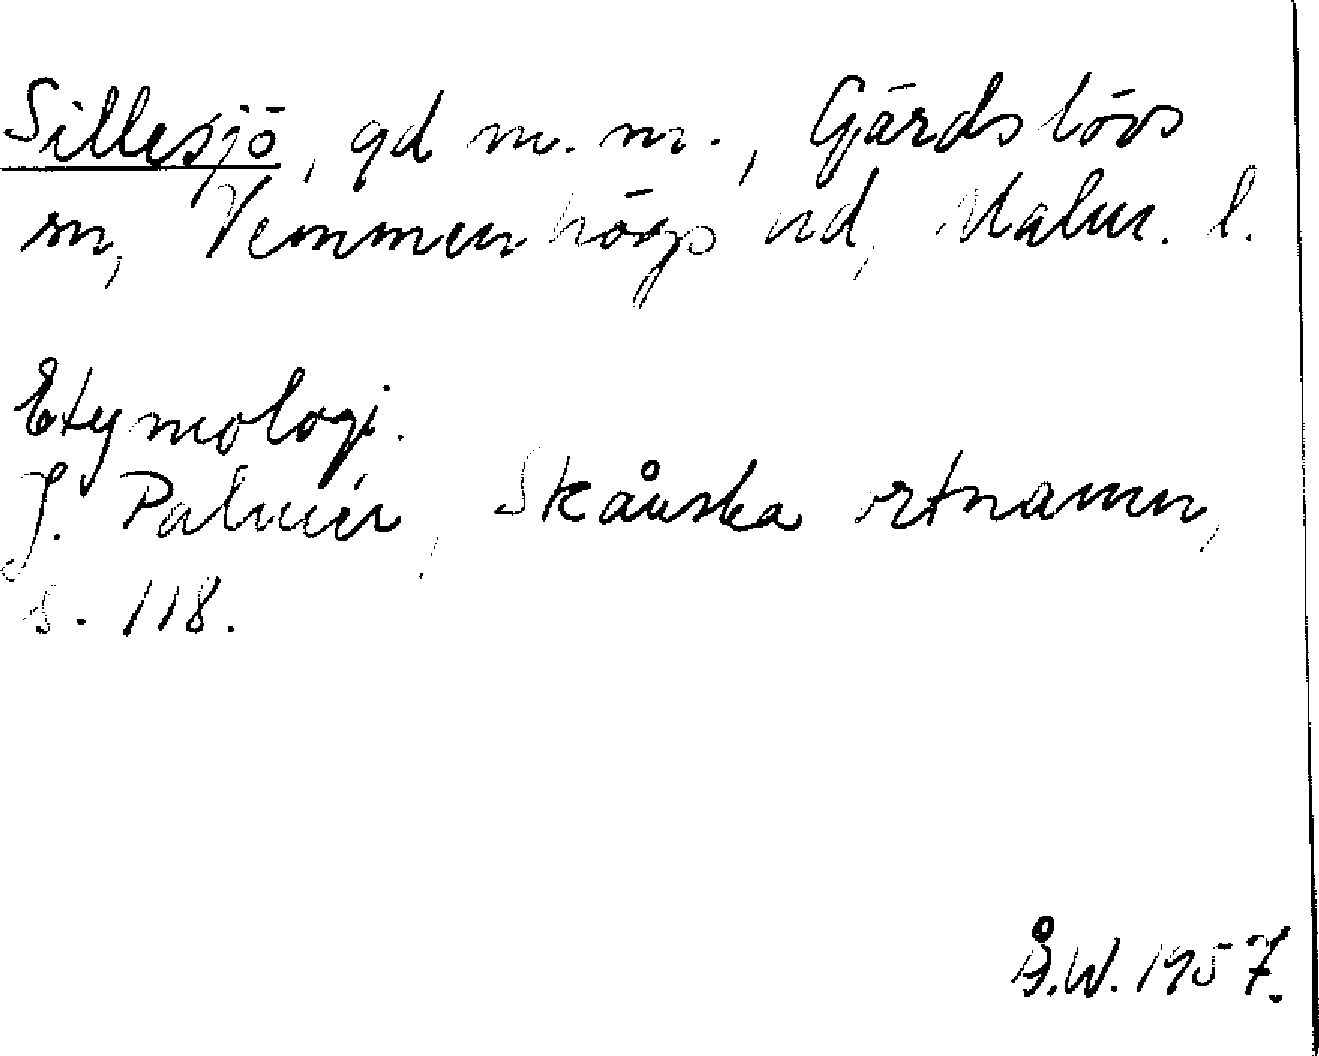 Sillesjö, gd m. m., Gärdslövs
sn, Vemmenhögs hd, Malm. l.
Etymologi.
J. Palmér, Skånska ortnamn,
s. 118.
Å.W. 1957.